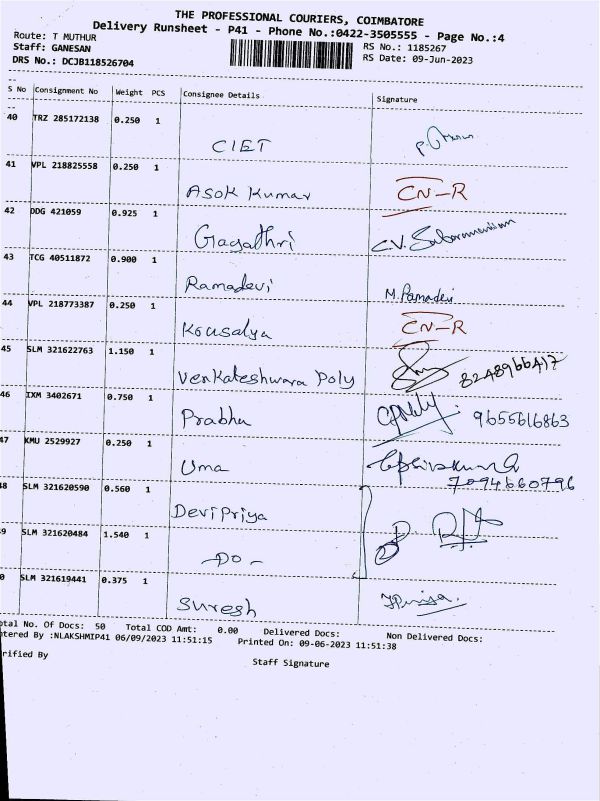 THE PROFESSIONAL COURIERS, COIMBATORE
Delivery Runsheet - P41 - Phone No.:0422-3505555 - Page No.:4
Route: T MUTHUR
RS No.: 1185267
Staff: GANESAN
RS Date: 09-Jun-2023
DRS No.: DCJB118526704
S No Consignment No Weight PCS Consignee Details Signature
40 TRZ 285172138 0.250 1
CIET
41 VPL 218825558 0.250 1
Asok Kumar CN-R
42 DDG 421059 0.925 1
Gayathri C.V. Subaramaniam
43 TCG 40511872 0.900 1
Ramadevi M. Ramadevi
44 VPL 218773387 0.250 1
Kousalya CN-R
45 SLM 321622763 1.150 1
Venkateshwara Poly 8248966417
46 IXM 3402671 0.750 1
Prabha 9655616863
47 KMU 2529927 0.250 1
Uma
7094660796
8 SLM 321620590 0.560 1
Devi Priya
9 SLM 321620484 1.540 1
-Do-
0 SLM 321619441 0.375 1
Suresh
otal No. Of Docs: 50 Total COD Amt: 0.00 Delivered Docs: Non Delivered Docs:
ntered By :NLAKSHMIP41 06/09/2023 11:51:15 Printed On: 09-06-2023 11:51:38
rified By
Staff Signature